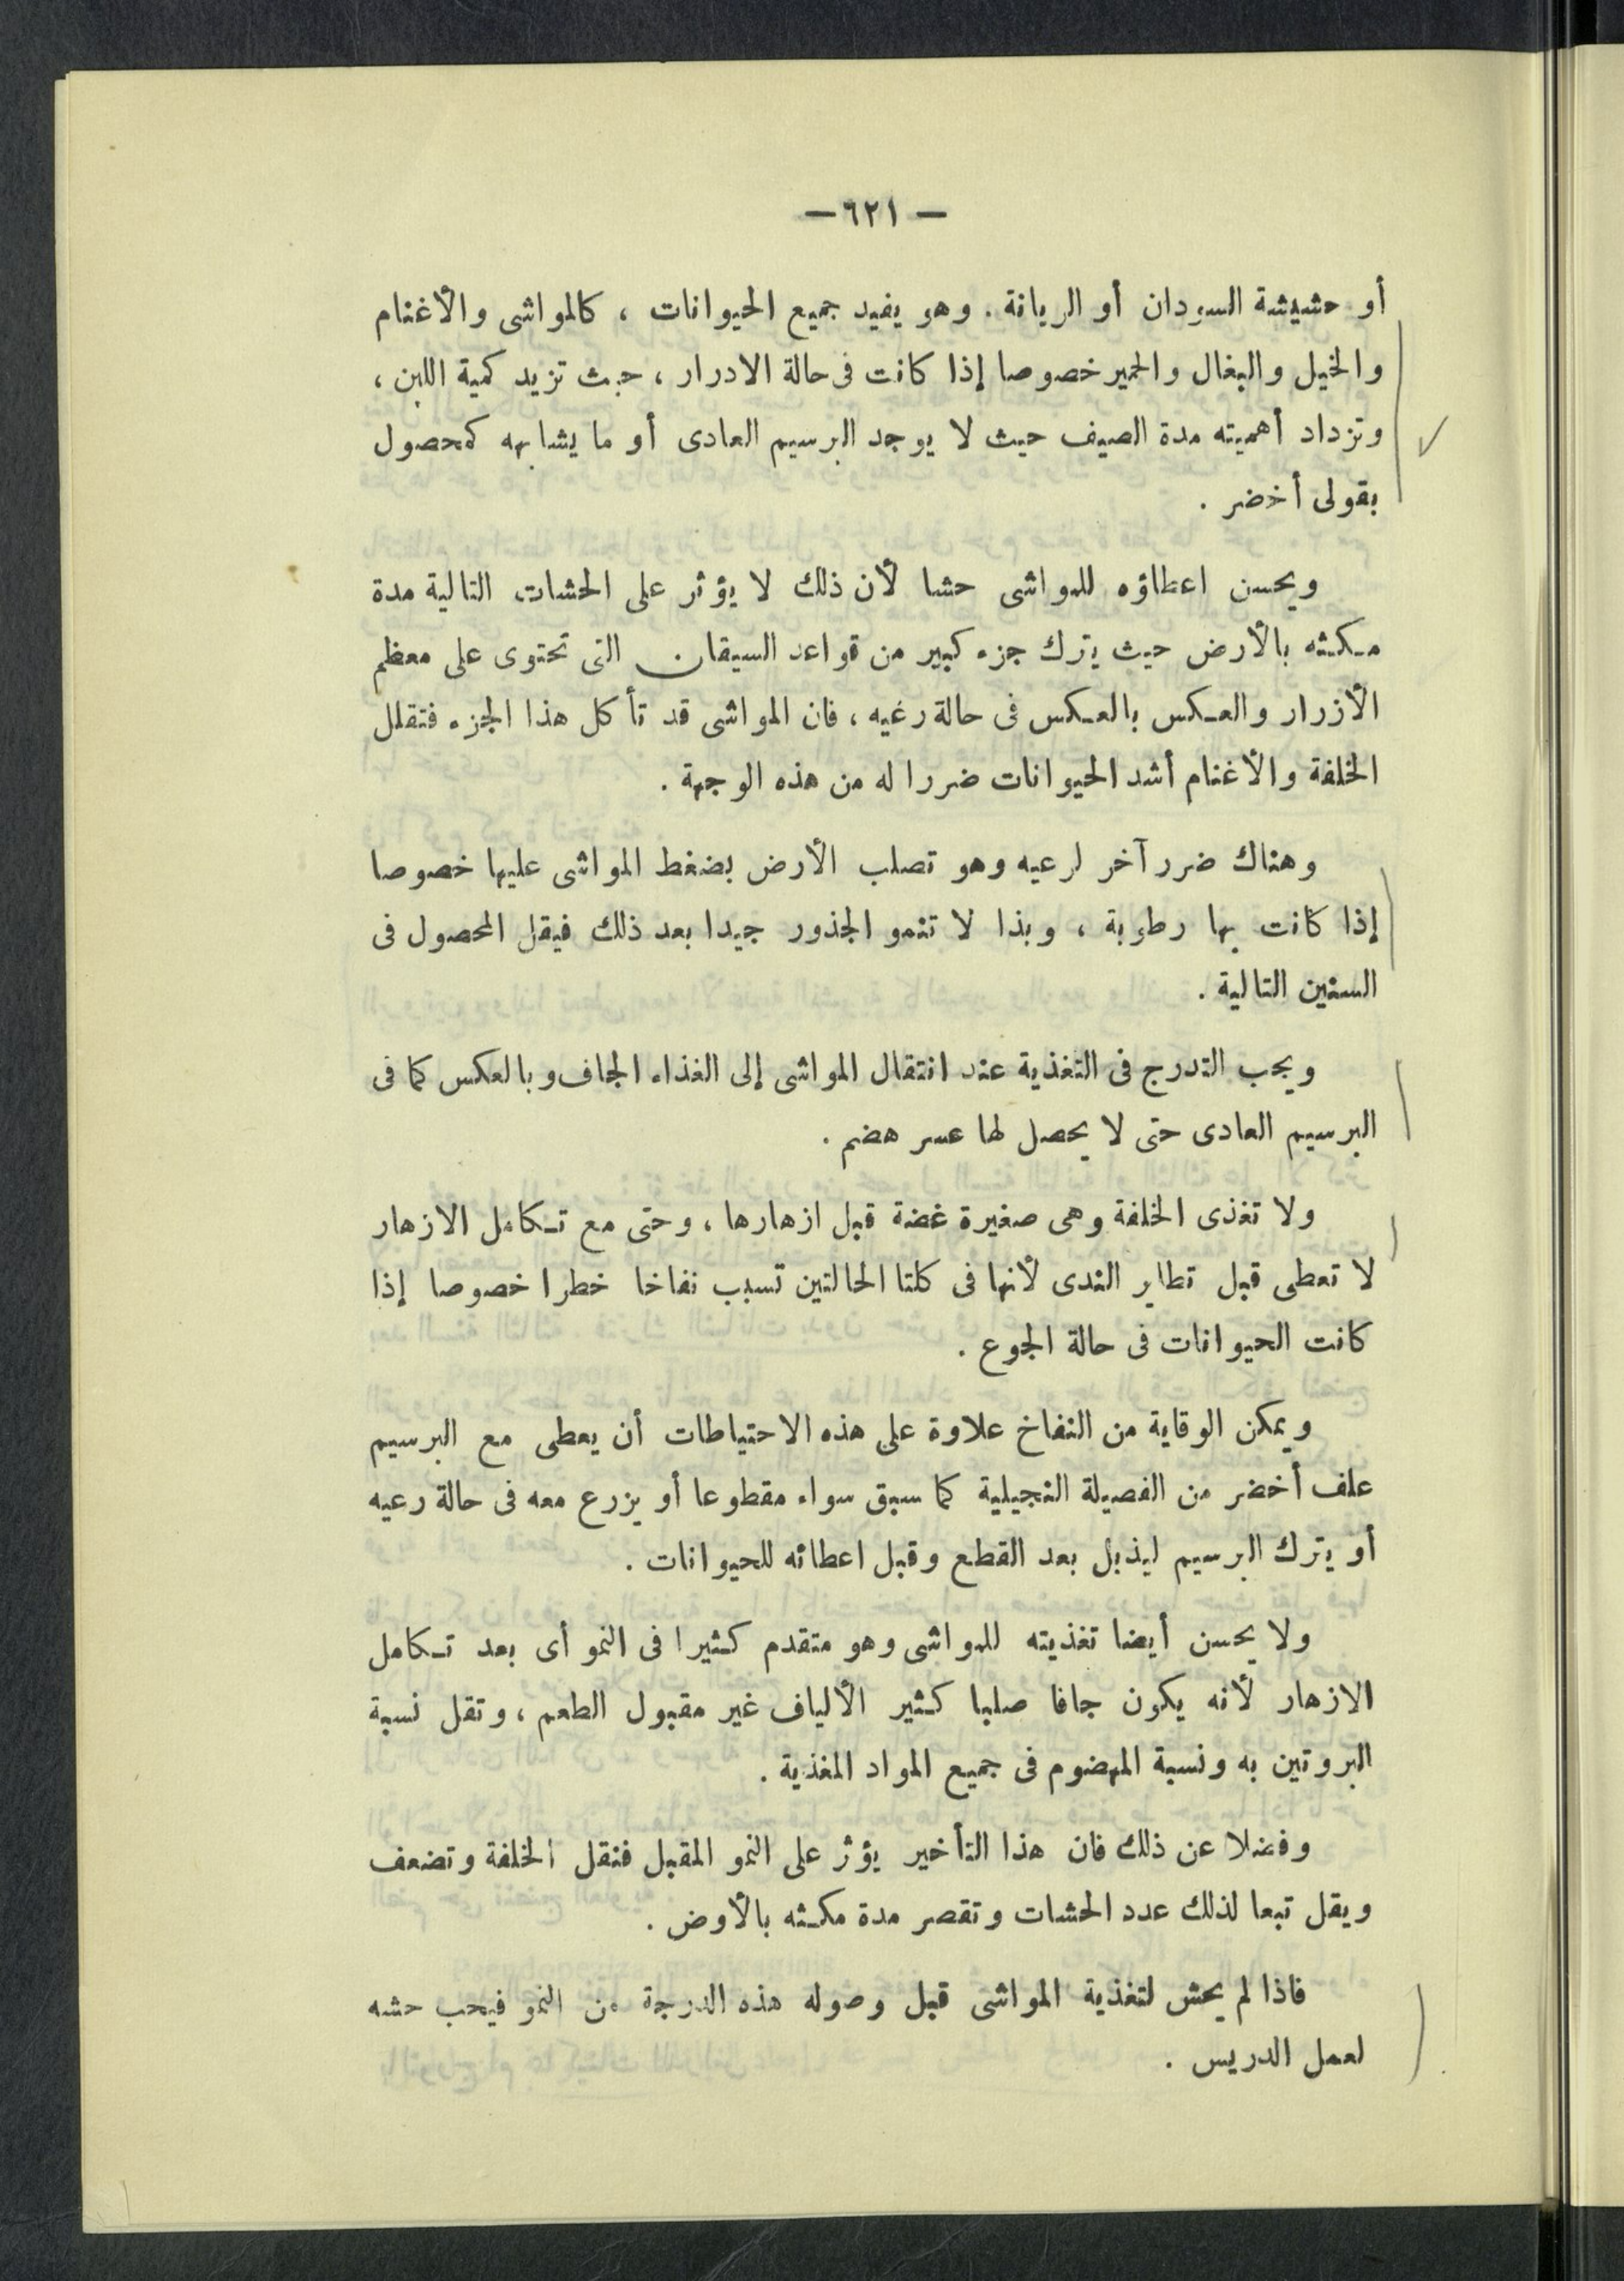 — ٦٢١ —
أو حشيشة السودان أو الريانة . وهو يفيد جميع الحيوانات ، كالمواشى والأغنام
والخيل والبغال والحمير خصوصا إذا كانت فى حالة الادرار ، حيث تزيد كمية اللبن ،
وتزداد أهميته مدة الصيف حيث لا يوجد البرسيم العادى أو ما يشابهه كمحصول
بقولى أخضر .
ويحسن اعطاؤه للمواشى حشا لأن ذلك لا يؤثر على الحشات التالية مدة
مكثه بالأرض حيث يترك جزء كبير من قواعد السيقان التى تحتوى على معظم
الأزرار والعكس بالعكس فى حالة رغيه ، فان المواشى قد تأكل هذا الجزء فتقلل
الخلفة والأغنام أشد الحيوانات ضررا له من هذه الوجهة .
وهناك ضرر آخر لرعيه وهو تصلب الأرض بضغط المواشى عليها خصوصا
إذا كانت بها رطوبة ، وبذا لا تنمو الجذور جيدا بعد ذلك فيقل المحصول فى
السنين التالية .
ويجب التدرج فى التغذية عند انتقال المواشى إلى الغذاء الجاف وبالعكس كما فى
البرسيم العادى حتى لا يحصل لها عسر هضم .
ولا تغذى الخلفة وهى صغيرة غضة قبل ازهارها ، وحتى مع تكامل الازهار
لا تعطى قبل تطاير الندى لأنها فى كلتا الحالتين تسبب نفاخا خطرا خصوصا إذا
كانت الحيوانات فى حالة الجوع .
ويمكن الوقاية من النفاخ علاوة على هذه الاحتياطات أن يعطى مع البرسيم
علف أخضر من الفصيلة النجيلية كما سبق سواء مقطوعا أو يزرع معه فى حالة رعيه
أو يترك البرسيم ليذبل بعد القطع وقبل اعطائه للحيوانات .
ولا يحسن أيضا تغذيته للمواشى وهو متقدم كثيرا فى النمو أى بعد تكامل
الازهار لأنه يكون جافا صلبا كثير الألياف غير مقبول الطعم ، وتقل نسبة
البروتين به ونسبة المهضوم فى جميع المواد المغذية .
وفضلا عن ذلك فان هذا التأخير يؤثر على النمو المقبل فتقل الخلفة وتضعف
ويقل تبعا لذلك عدد الحشات وتقصر مدة مكثه بالأوض .
فاذا لم يحش لتغذية المواشى قبل وصوله هذه الدرجة من النمو فيجب حشه
لعمل الدريس .